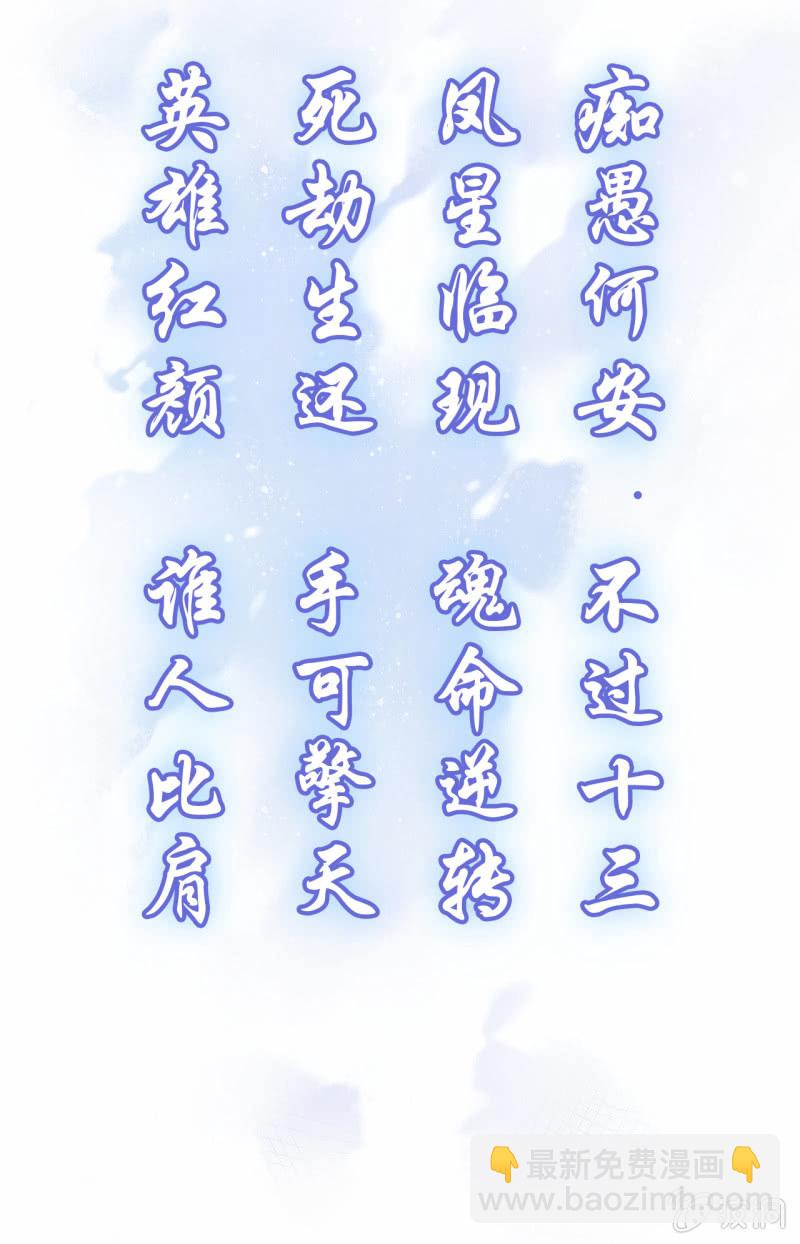 痴愚何安·不过十三
凤星临现 魂命逆转
死劫生还 手可擎天
英雄红颜 谁人比肩
👇最新免费漫画👇
www.baozimh.com